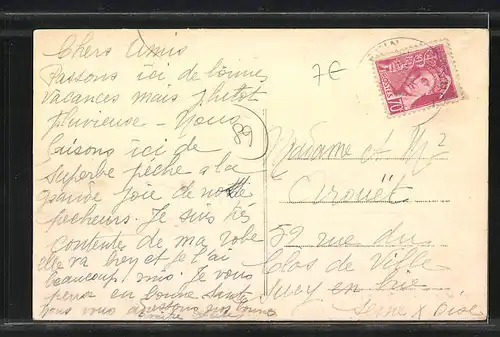 Chers Amis
Passons ici de bonnes
vacances mais plutot
pluvieuse - Nous
faisons ici de
superbe pêche a la
joie de notre
pecheurs. Je suis très
contente de ma robe
elle va bien et je l'ai
beaucoup mis. Je vous
pense en bonne santé
nous vous
7€
89
POSTES 70
Madame et Mr
Arouët
59 rue du
Clos de Ville
Sucy en Brie
Seine x Oise